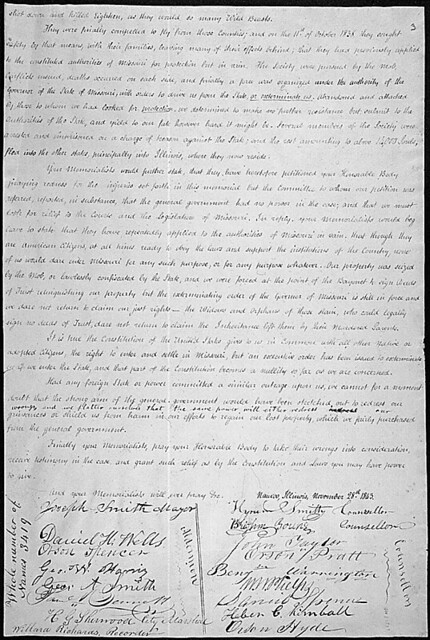 3
shot down and killed Eighteen, as they would so many Wild Beasts.
They were finally compelled to fly from those Counties; and on the 11th of October 1838 they sought
safety by that means, with their families, leaving many of their effects behind; that they had previously applied
to the constituted authorities of Missouri for protection but in vain. The Society were pursued by the Mob,
Conflicts ensued, deaths occurred on each side, and finally a force was organized under the authority of the
Governor of the State of Missouri, with orders to drive us from the State, or exterminate us. Abandoned and attacked
by those to whom we had looked for protection, we determined to make no further resistance but submit to the
authorities of the State, and yield to our fate however hard it might be. Several members of the Society were
arrested and imprisoned on a charge of treason against the State; and the rest amounting to above 14,000 Souls,
fled into the other states principally into Illinois, where they now reside.
Your Memorialists would further state, that they have heretofore petitioned your Honorable Body
praying redress for the injuries set forth in this memorial but the Committee to whom our petition was
referred, reported, in substance, that the general government had no power in the case; and that we must
look for relief to the Courts and the Legislature of Missouri. In reply, your Memorialists would beg
leave to state that they have repeatedly applied to the authorities of Missouri in vain; that though they
are American Citizens, at all times ready to obey the laws and support the institutions of the Country, none
of us would dare enter Missouri for any such purpose, or for any purpose whatever. Our property was seized
by the Mob, or lawlessly confiscated by the State, and we were forced at the point of the Bayonet to sign Deeds
of Trust relinquishing our property but the exterminating order of the Governor of Missouri is still in force and
we dare not return to claim our just rights — the Widows and Orphans of those slain, who could legally
sign no deeds of Trust, dare not return to claim the Inheritance left them by their Murdered Parents.
It is true the Constitution of the United States gives to us in Common with all other native or
adopted Citizens, the right to enter and settle in Missouri, but an executive order has been issued to exterminate
us if we enter the State, and that part of the Constitution becomes a nullity so far as we are concerned.
Had any foreign State or power committed a similar outrage upon us, we cannot for a moment
doubt that the strong arm of the general government would have been stretched out to redress our
wrongs and we flatter ourselves that the same power will either redress our
grievances or shield us from harm in our efforts to regain our lost property which we fairly purchased
from the general government.
Finally your Memorialists, pray your Honorable Body to take their wrongs into consideration,
receive testimony in the case, and grant such relief as by the Constitution and Laws you may have power
to give.
and your Memorialists will ever pray &c.
Nauvoo, Illinois, November 28th 1843.
Joseph Smith Mayor
Daniel H. Wells
Orson Spencer
Geo. W. Harris
Geo. A. Smith
H. G. Sherwood City Marshal
Willard Richards, Recorder
Aldermen
Whole number of
Names 3419
Hyrum Smith Counsellor
Brigham Young Counsellor
John Taylor
Orson Pratt
Benj. Warrington
W W Phelps
Heber C. Kimball
Orson Hyde
Counsellors